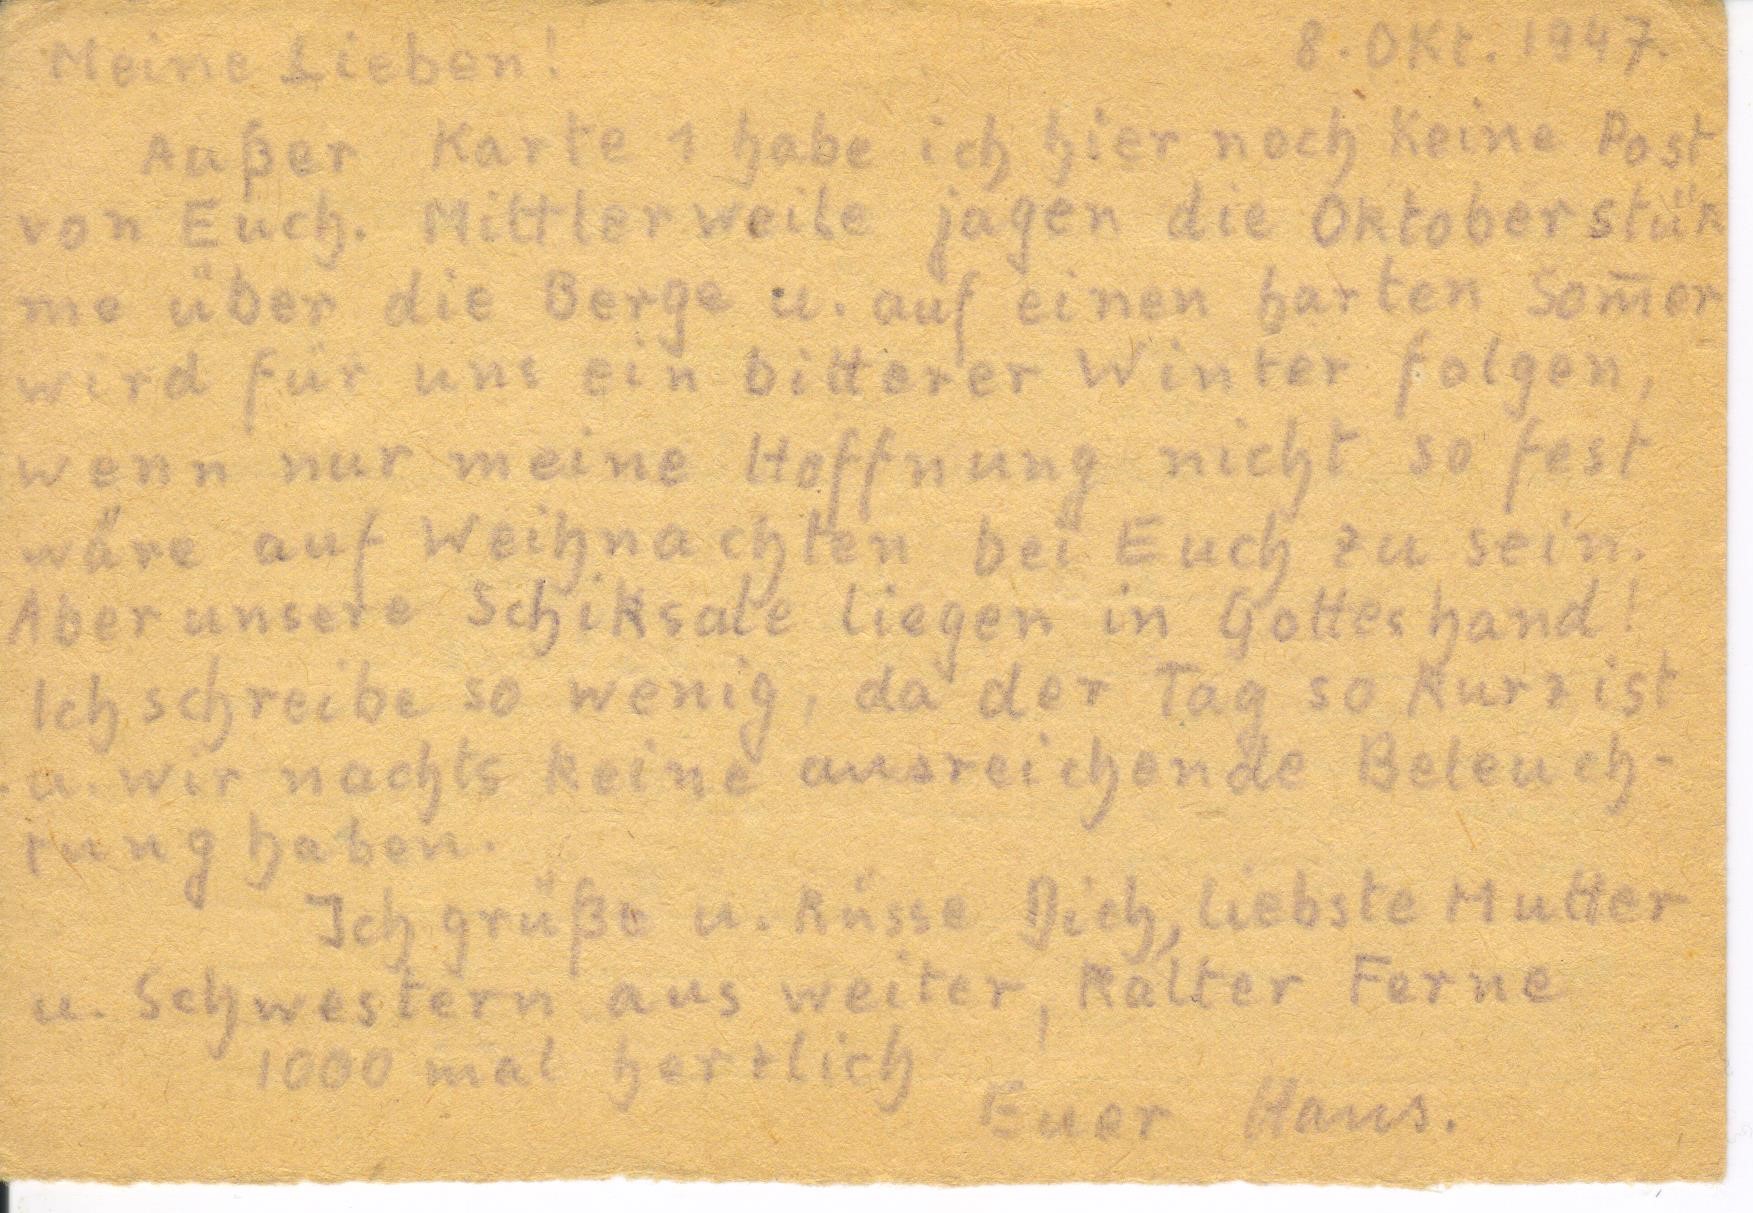 Meine Lieben! 8. Okt. 1947.
Außer Karte 1 habe ich hier noch keine Post
von Euch. Mittlerweile jagen die Oktoberstür
me über die Berge u. auf einen harten Som̄er
wird für uns ein bitterer Winter folgen,
wenn nur meine Hoffnung nicht so fest
wäre auf Weihnachten bei Euch zu sein.
Aber unsere Schiksale liegen in Gotteshand!
Ich schreibe so wenig, da der Tag so kurz ist
u. wir nachts keine ausreichende Beleuch-
tung haben.
Ich grüße u. küsse Dich, liebste Mutter
u. Schwestern aus weiter, kalter Ferne
1000 mal herzlich
Euer Hans.